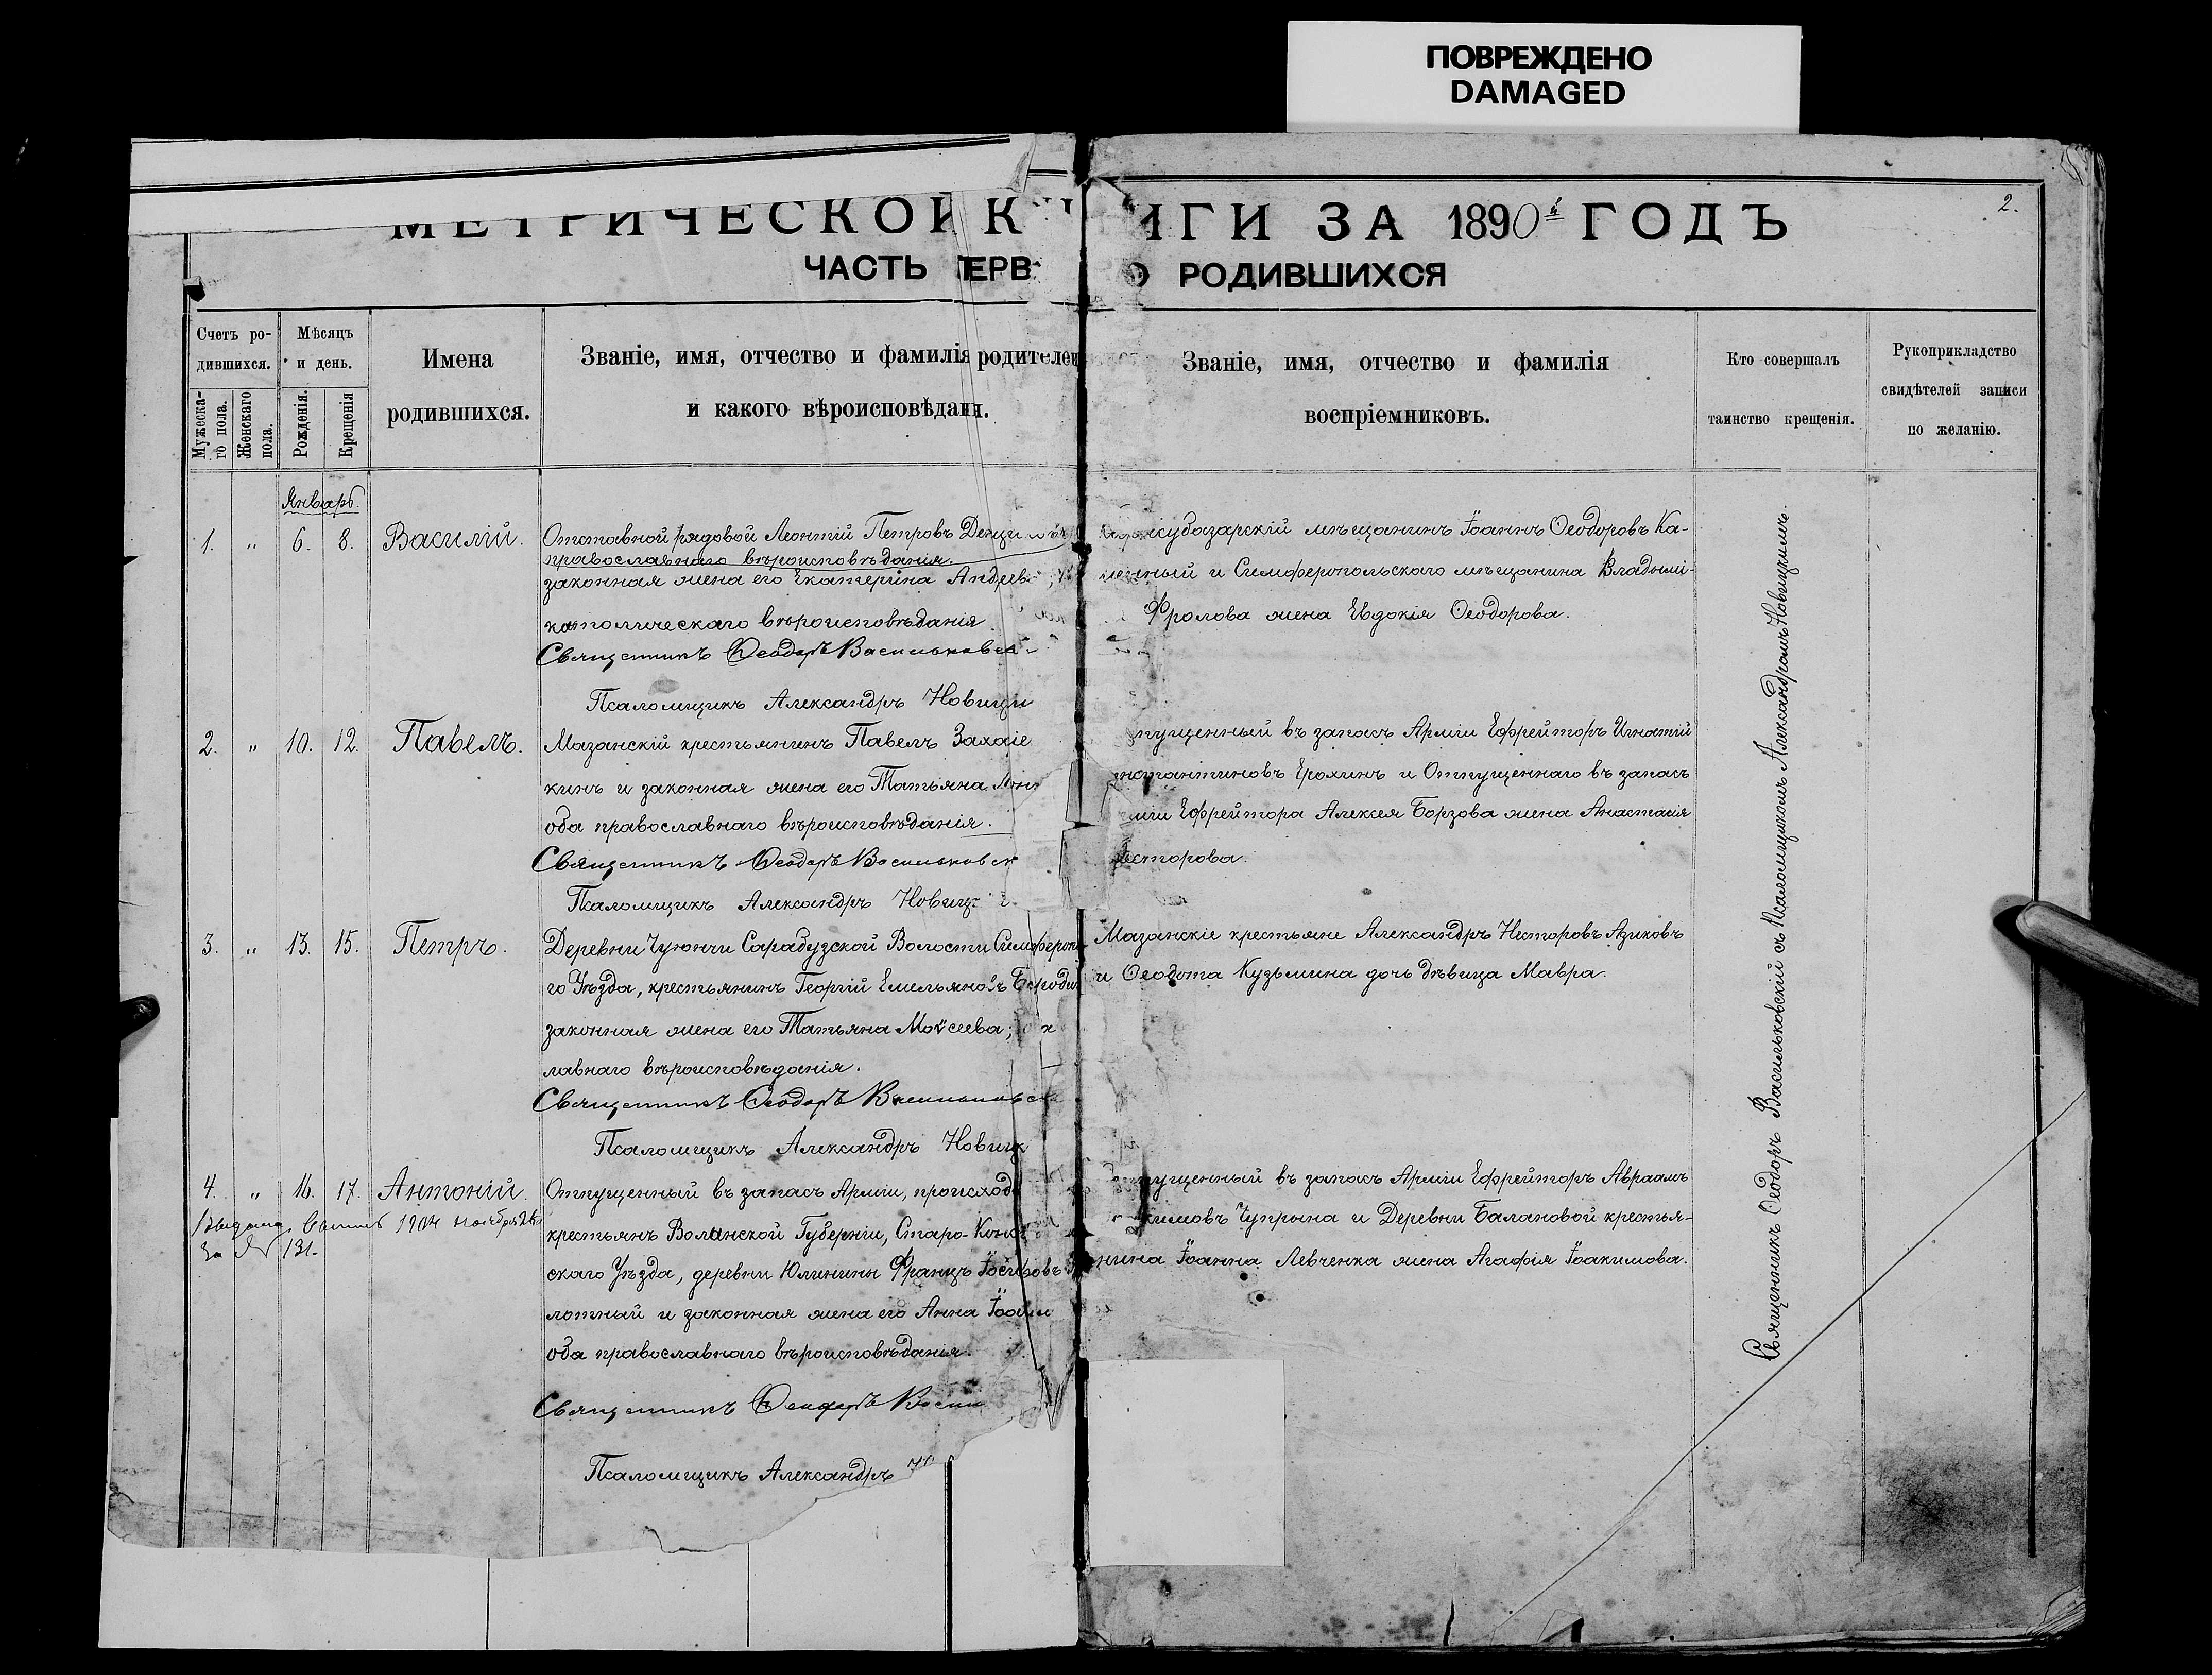 ПОВРЕЖДЕНО
DAMAGED
МЕТРИЧЕСКОЙ К
ИГИ ЗА 1890й ГОДЪ
2.
ЧАСТЬ ПЕРВ
О РОДИВШИХСЯ
Счетъ ро-
дившихся.
Мужеска-
го пола.
Женскаго
пола.
Мѣсяцъ
и день.
Рожденія.
Крещенія
Имена
родившихся.
Званіе, имя, отчество и фамилія родителей
и какого вѣроисповѣданія.
Званіе, имя, отчество и фамилія
воспріемниковъ.
Кто совершалъ
таинство крещенія.
Рукоприкладство
свидѣтелей записи
по желанію.
Январь.
1. " 6. 8. Василій.
Отставной рядовой Леонтій Петровъ
православнаго вѣроисповѣданія,
законная жена его Екатерина Андреев
католическаго вѣроисповѣданія
Священникъ Ѳеодоръ Васильковскі
Псаломщикъ Александръ Новицкі
мѣщанинъ Іоаннъ Ѳеодоровъ Ка-
менный и Симферопольскаго мѣщанина Владимі-
Фролова жена Евдокія Ѳеодорова.
2. " 10. 12. Павелъ.
Мазанскій крестьянинъ Павелъ Захаріе
кинъ и законная жена его Татьяна
оба православнаго вѣроисповѣданія.
Священникъ Ѳеодоръ Васильковск
Псаломщикъ Александръ Новиц
пущенный въ запасъ Арміи Ефрейторъ Игнатій
нстантиновъ Ерохинъ и Отпущеннаго въ запасъ
міи Ефрейтора Алексея Борзова жена Анастасія
есторова.
3. " 13. 15. Петръ.
Деревни Чуюнчи Сарабузской Волости Симферопо
го Уѣзда, крестьянинъ Георгій Емельяновъ Бороди
законная жена его Татьяна Моѵсеева;
лавнаго вѣроисповѣданія.
Священникъ Ѳеодоръ Васильковск
Псаломщикъ Александръ Новицк
Мазанскіе крестьяне Александръ Несторовъ Азиковъ
и Ѳеодота Кузьмина дочь дѣвица Мавра.
4. " 16. 17. Антоній.
Выдана 1904 Ноября
За № 131.
Отпущенный въ запасъ Арміи, происход
крестьянъ Волынской Губерніи, Старо-Конст
скаго Уѣзда, деревни Юлинины Францъ Іосифовъ
лотный и законная жена его Анна
оба православнаго вѣроисповѣданія.
Священникъ Ѳеодоръ Васил
Псаломщикъ Александръ
пущенный въ запасъ Арміи Ефрейторъ Авраамъ
кимовъ Чупрына и Деревни Балановой крестья-
нина Іоанна Левченка жена Агафія Іоакимова.
Священникъ Ѳеодоръ Васильковскій съ Псаломщикомъ Александромъ Новицкимъ.